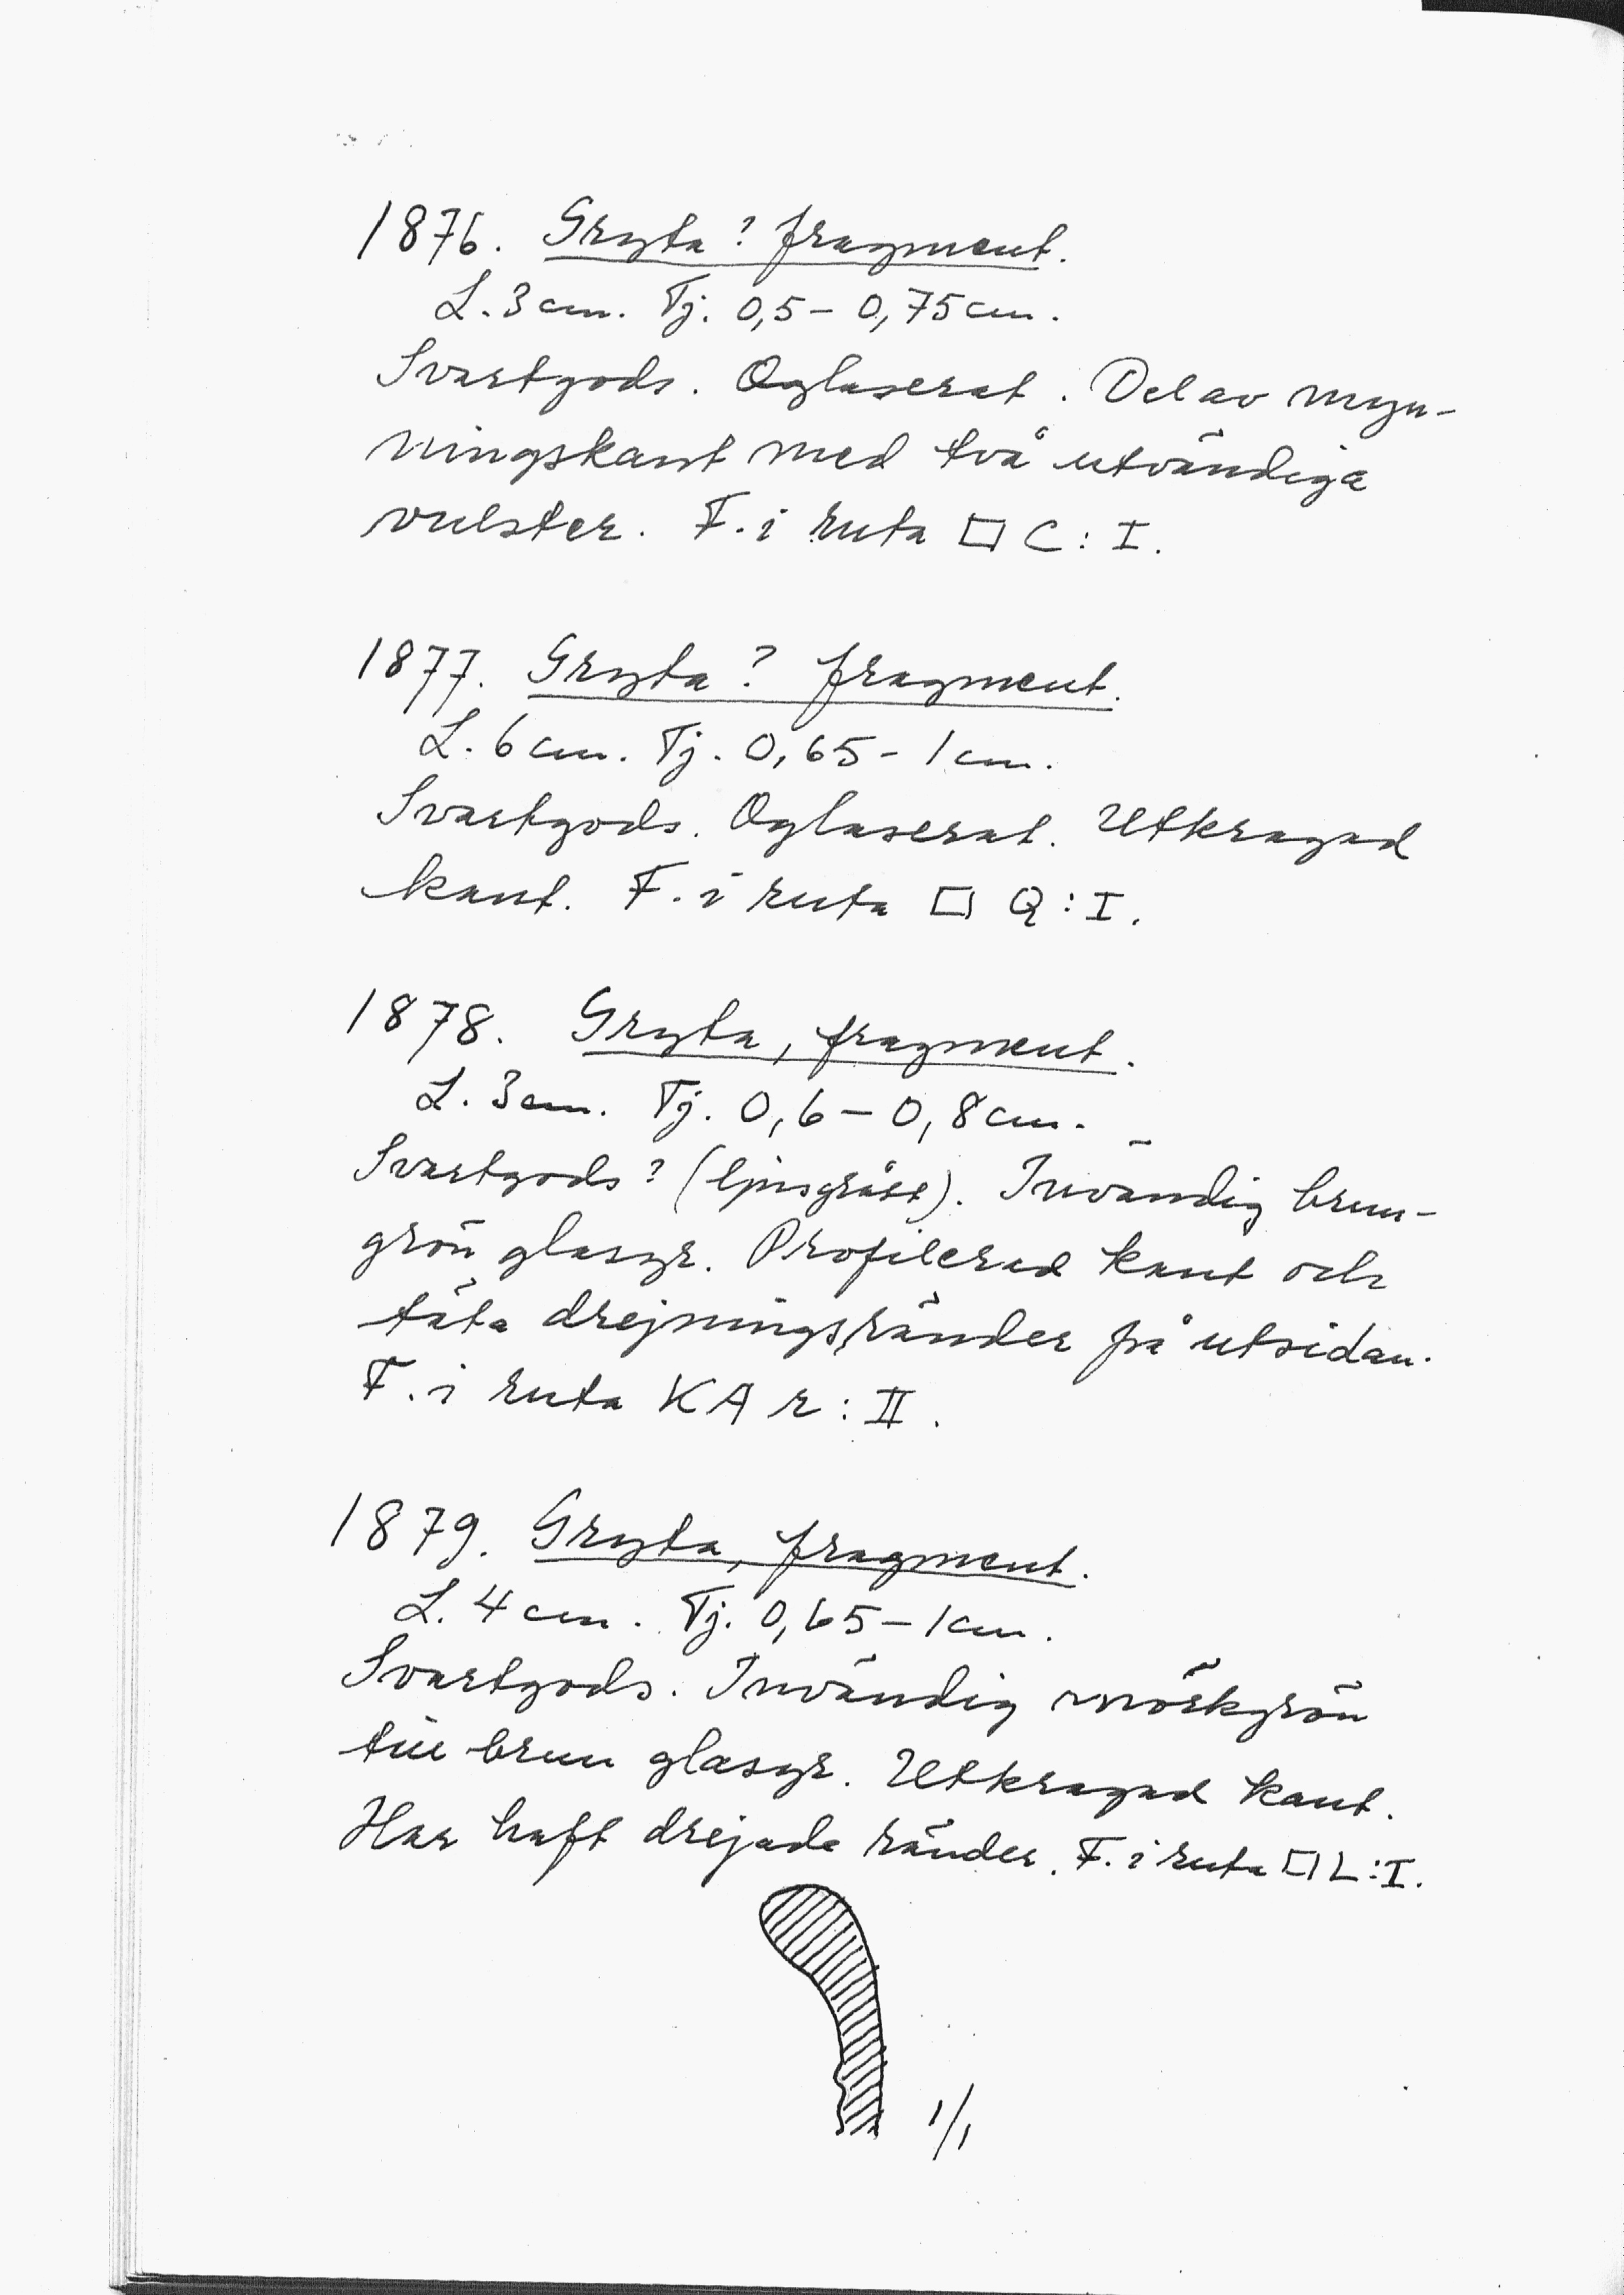 1876. Gryta? fragment.
L. 3 cm. Tj. 0,5 – 0,75 cm.
Svartgods. Oglaserat. Del av myn-
ningskant med två utvändiga
vulster. F. i ruta □ C : I.
1877. Gryta? fragment.
L. 6 cm. Tj. 0,65 - 1 cm.
Svartgods. Oglaserat. Utkragad
kant. F. i ruta □ Q : I.
1878. Gryta, fragment.
L. 3 cm. Tj. 0,6 – 0,8 cm.
Svartgods? (ljusgrått). Invändig brun-
grön glasyr. Profilerad kant och
täta drejningsränder på utsidan.
F. i ruta KA r : II.
1879. Gryta, fragment.
L. 4 cm. Tj. 0,65 – 1 cm.
Svartgods. Invändig mörkgrön
till brun glasyr. Utkragad kant.
Har haft drejade ränder. F. i ruta □ L : I.
1/1